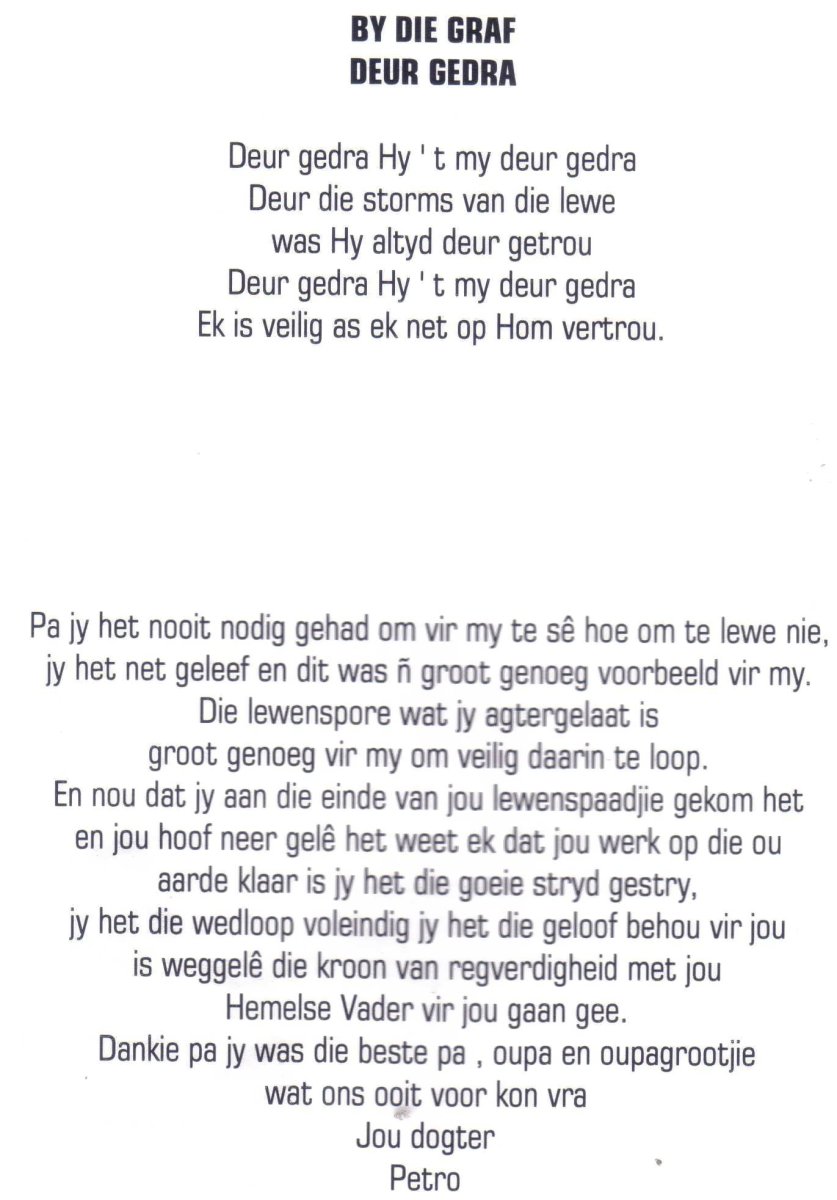 BY DIE GRAF
DEUR GEDRA
Deur gedra Hy ' t my deur gedra
Deur die storms van die lewe
was Hy altyd deur getrou
Deur gedra Hy ' t my deur gedra
Ek is veilig as ek net op Hom vertrou.
Pa jy het nooit nodig gehad om vir my te sê hoe om te lewe nie,
jy het net geleef en dit was ñ groot genoeg voorbeeld vir my.
Die lewenspore wat jy agtergelaat is
groot genoeg vir my om veilig daarin te loop.
En nou dat jy aan die einde van jou lewenspaadjie gekom het
en jou hoof neer gelê het weet ek dat jou werk op die ou
aarde klaar is jy het die goeie stryd gestry,
jy het die wedloop voleindig jy het die geloof behou vir jou
is weggelê die kroon van regverdigheid met jou
Hemelse Vader vir jou gaan gee.
Dankie pa jy was die beste pa , oupa en oupagrootjie
wat ons ooit voor kon vra
Jou dogter
Petro